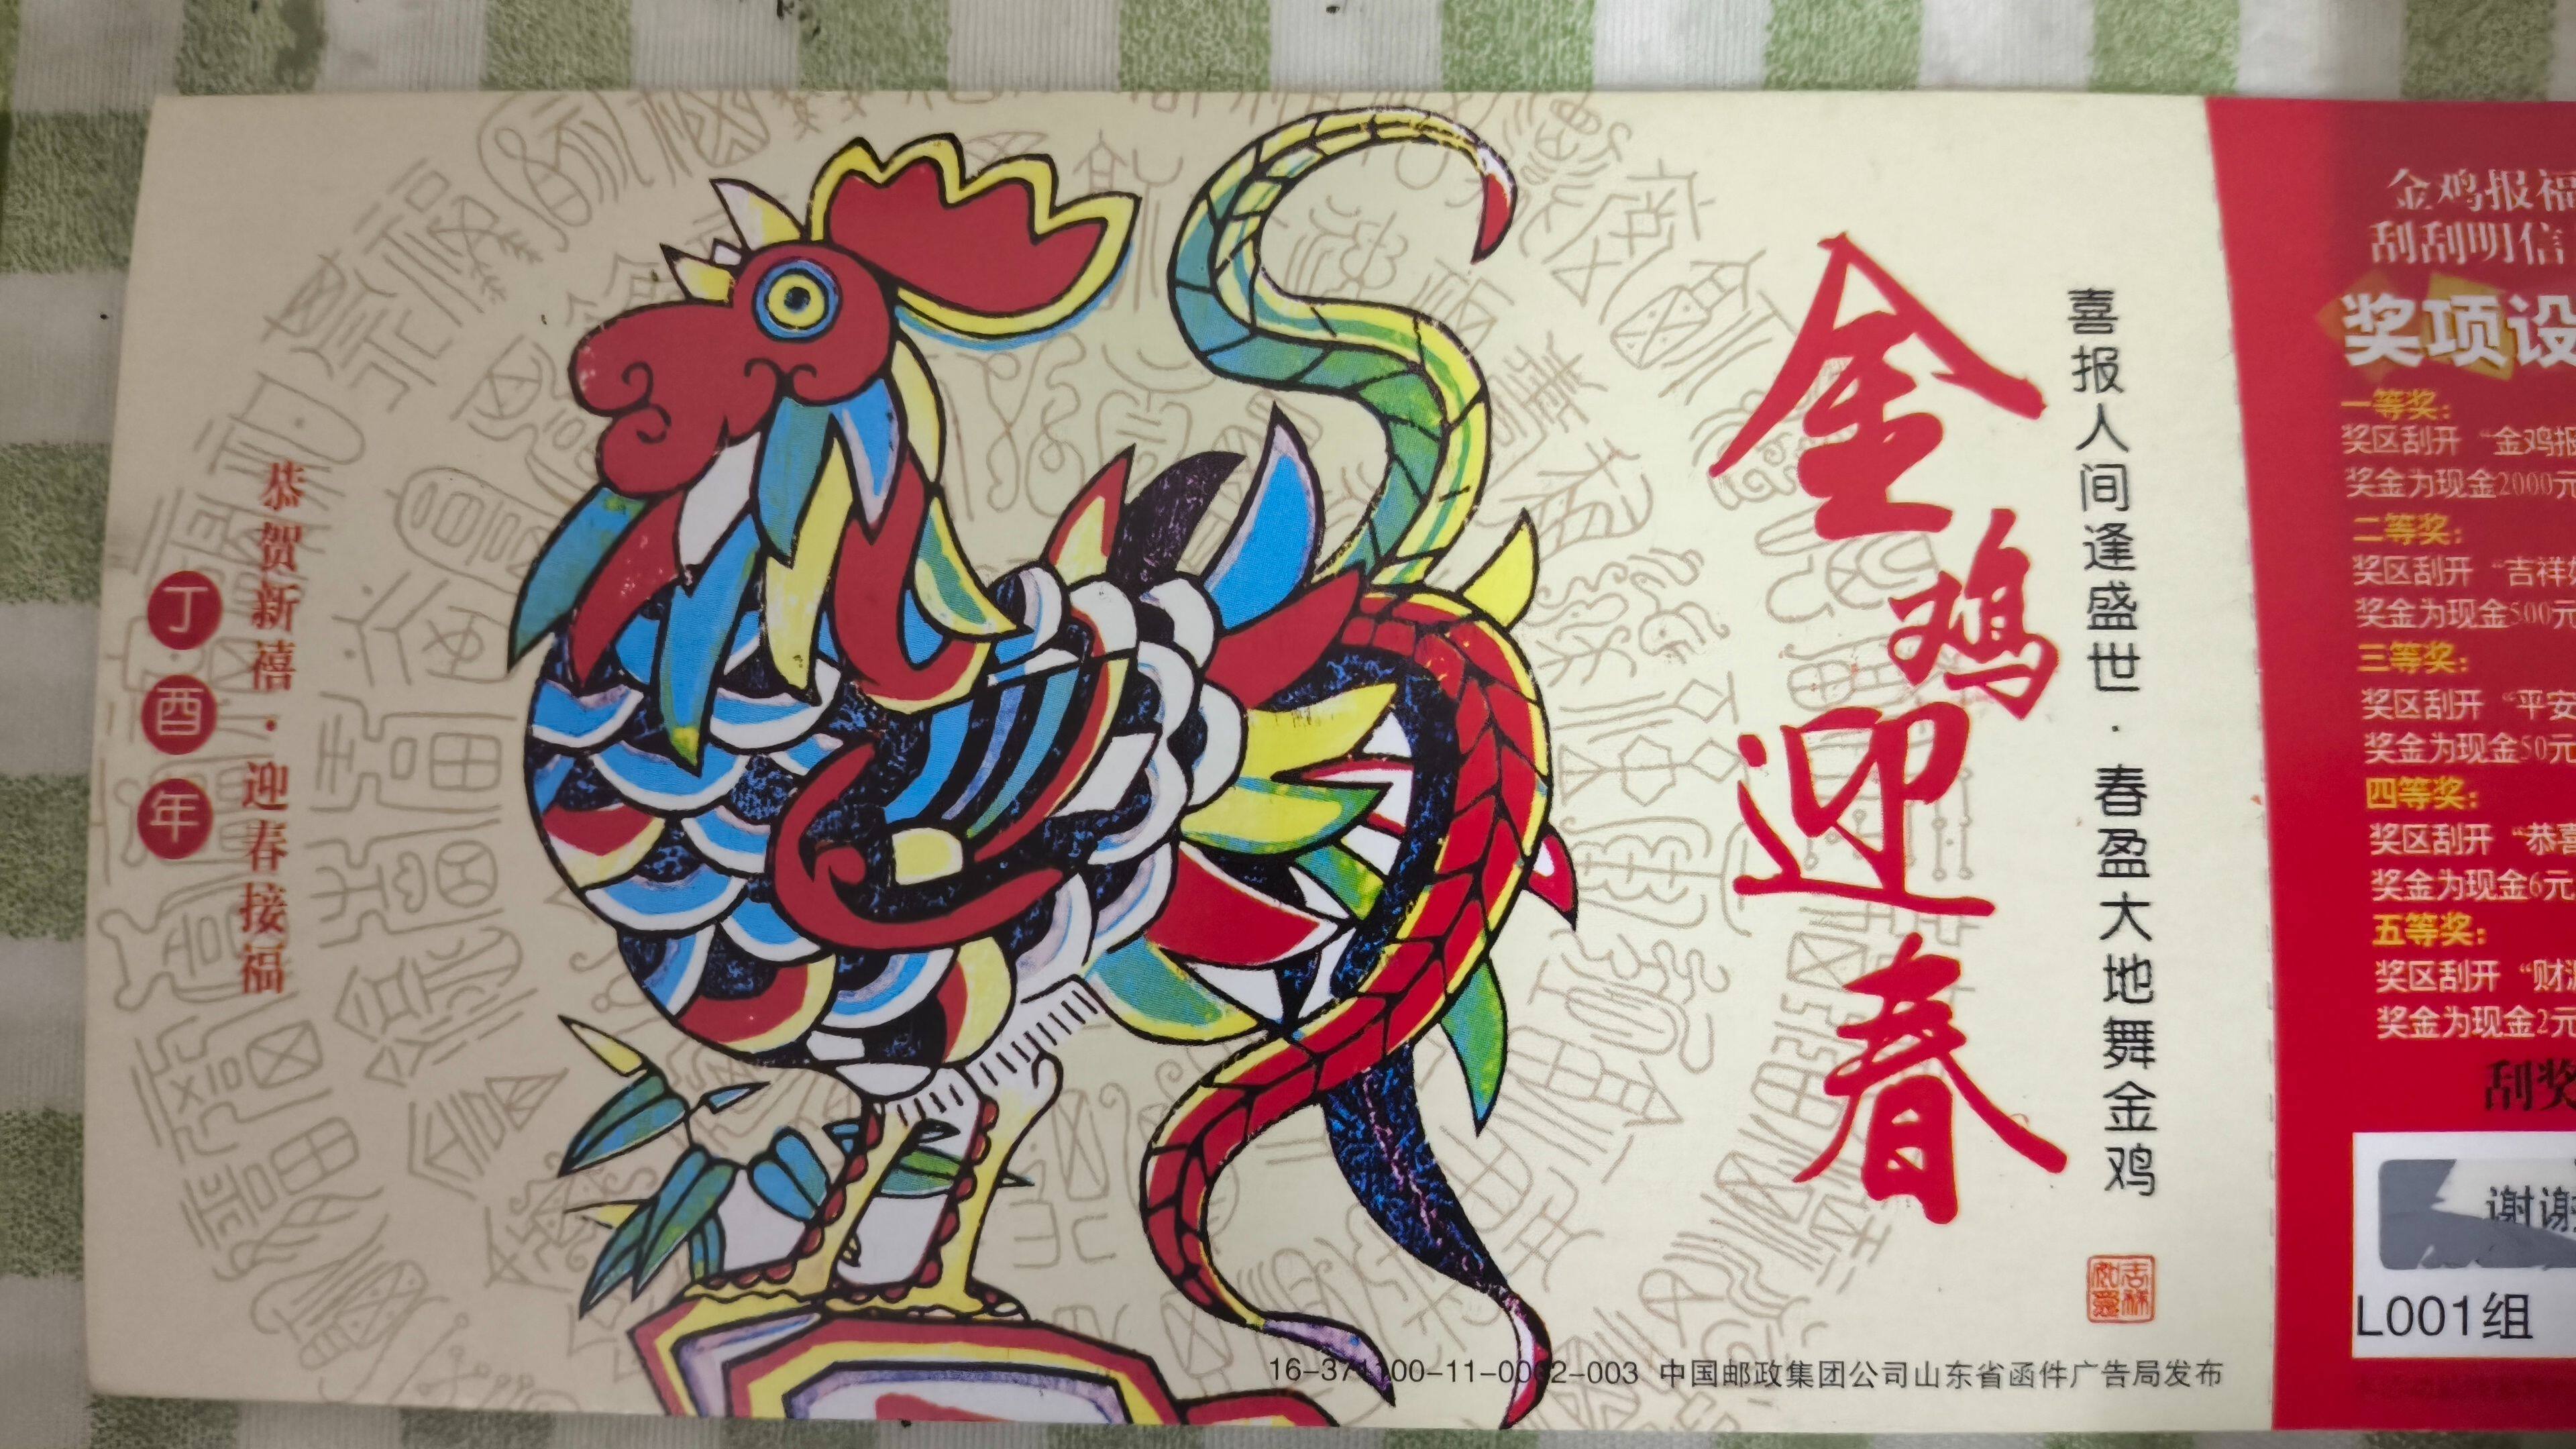 恭贺新禧·迎春接福
丁酉年
金鸡迎春
喜报人间逢盛世·春盈大地舞金鸡
吉祥如意
16-371100-11-0062-003 中国邮政集团公司山东省函件广告局发布
金鸡报福
刮刮明信
奖项设
一等奖：
奖区刮开“金鸡报
奖金为现金2000元
二等奖：
奖区刮开“吉祥如
奖金为现金500元
三等奖：
奖区刮开“平安
奖金为现金50元
四等奖：
奖区刮开“恭喜
奖金为现金6元
五等奖：
奖区刮开“财源
奖金为现金2元
刮奖
谢谢
L001组